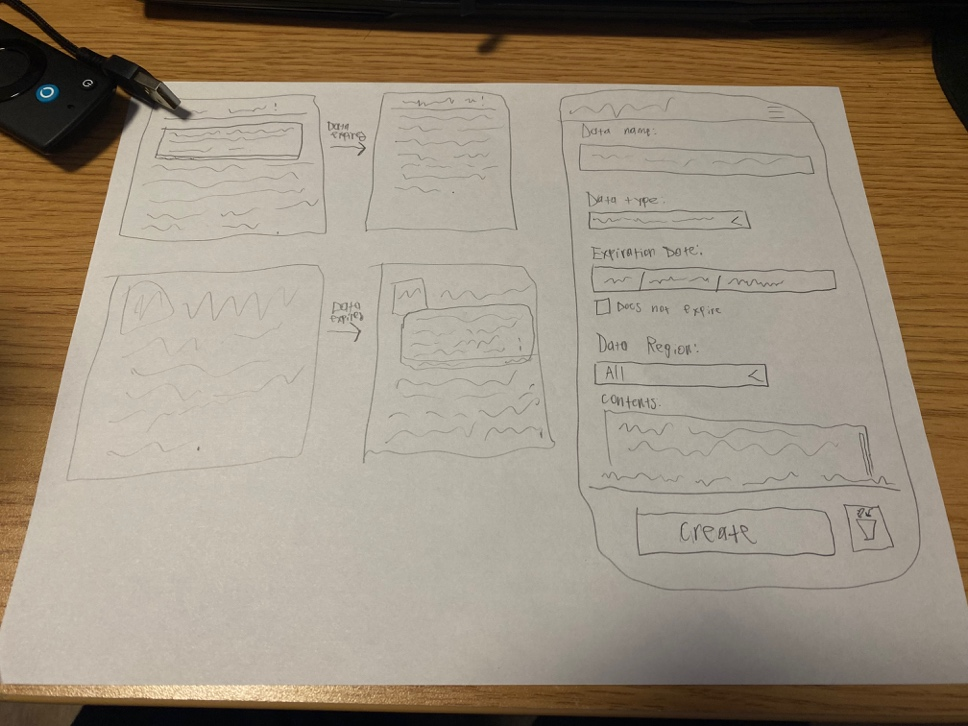 Data
Expired
Data
Expired
Data name:
Data type:
<
Expiration Date:
/ /
Does not Expire
Data Region:
All <
contents:
Create